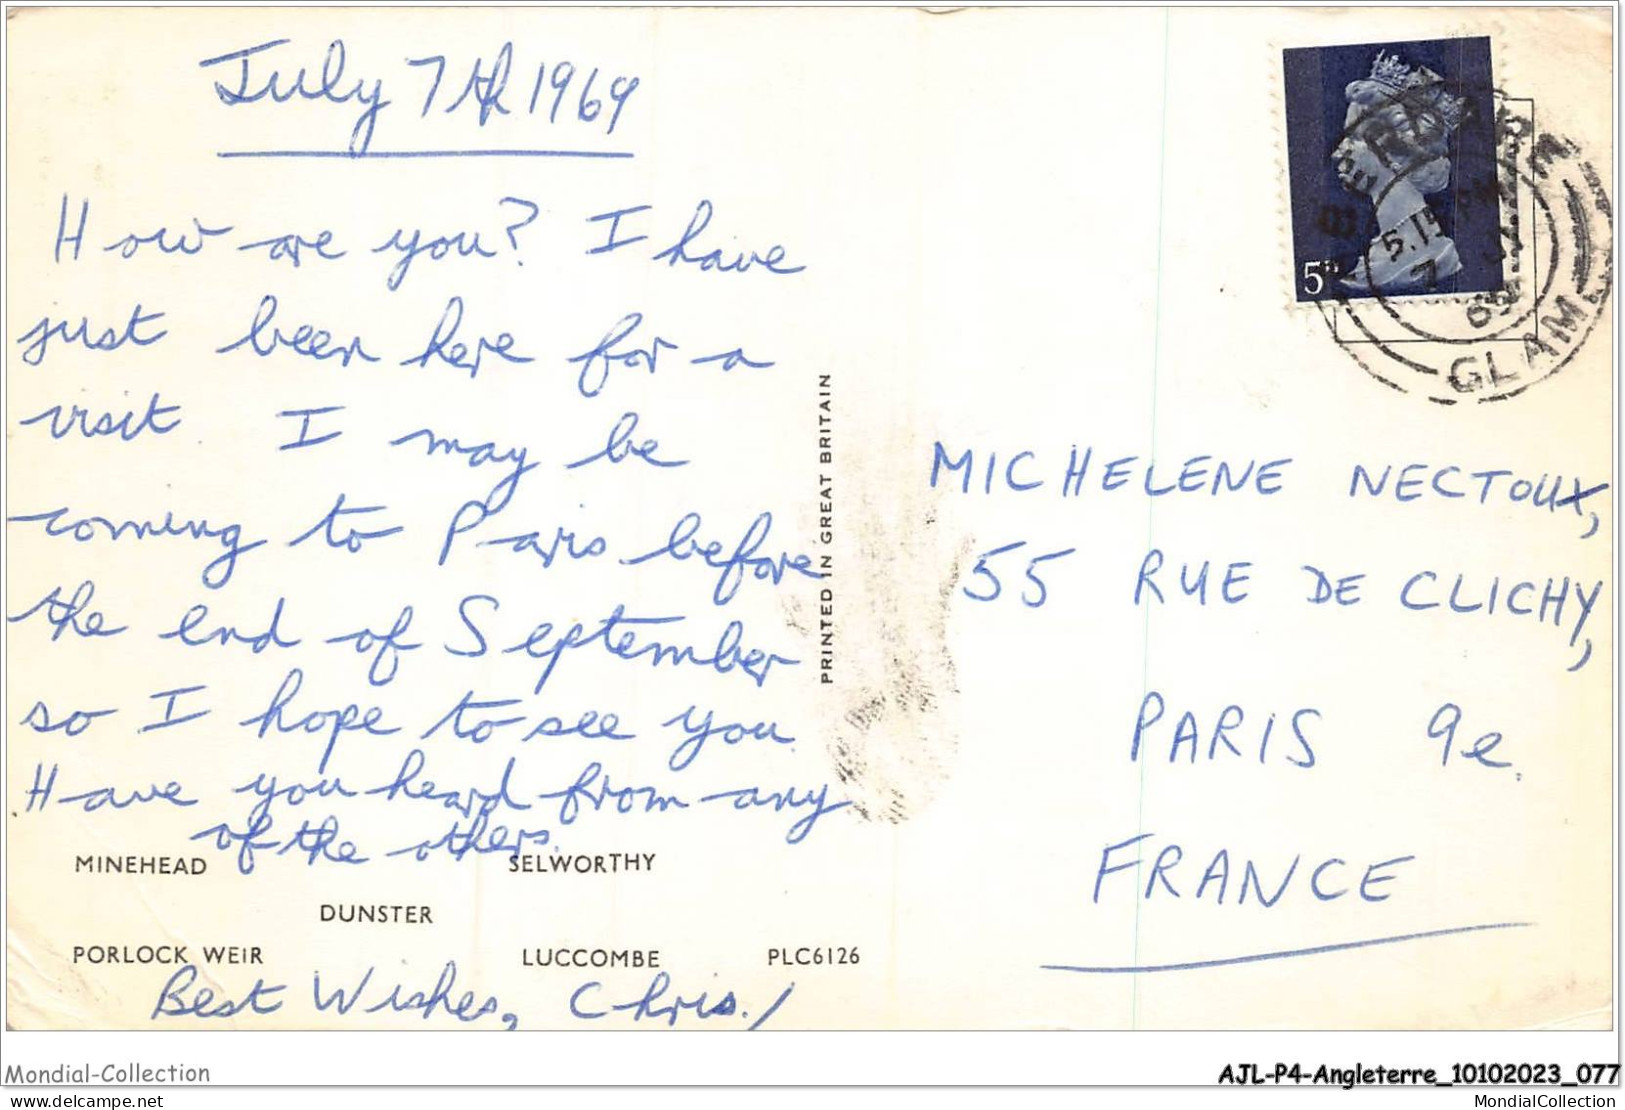 July 7th 1969
How are you? I have
just been here for a
visit I may be
coming to Paris before
the end of September
so I hope to see you.
Have you heard from any
of the others.
MINEHEAD SELWORTHY
DUNSTER
PORLOCK WEIR LUCCOMBE PLC6126
Best Wishes, Chris.
PRINTED IN GREAT BRITAIN
5D
ABERDARE
5.15 PM
7 JY
69
GLAM
MICHELENE NECTOUX,
55 RUE DE CLICHY,
PARIS 9e.
FRANCE
Mondial-Collection
AJL-P4-Angleterre_10102023_077
delcampe.net
MondialCollection